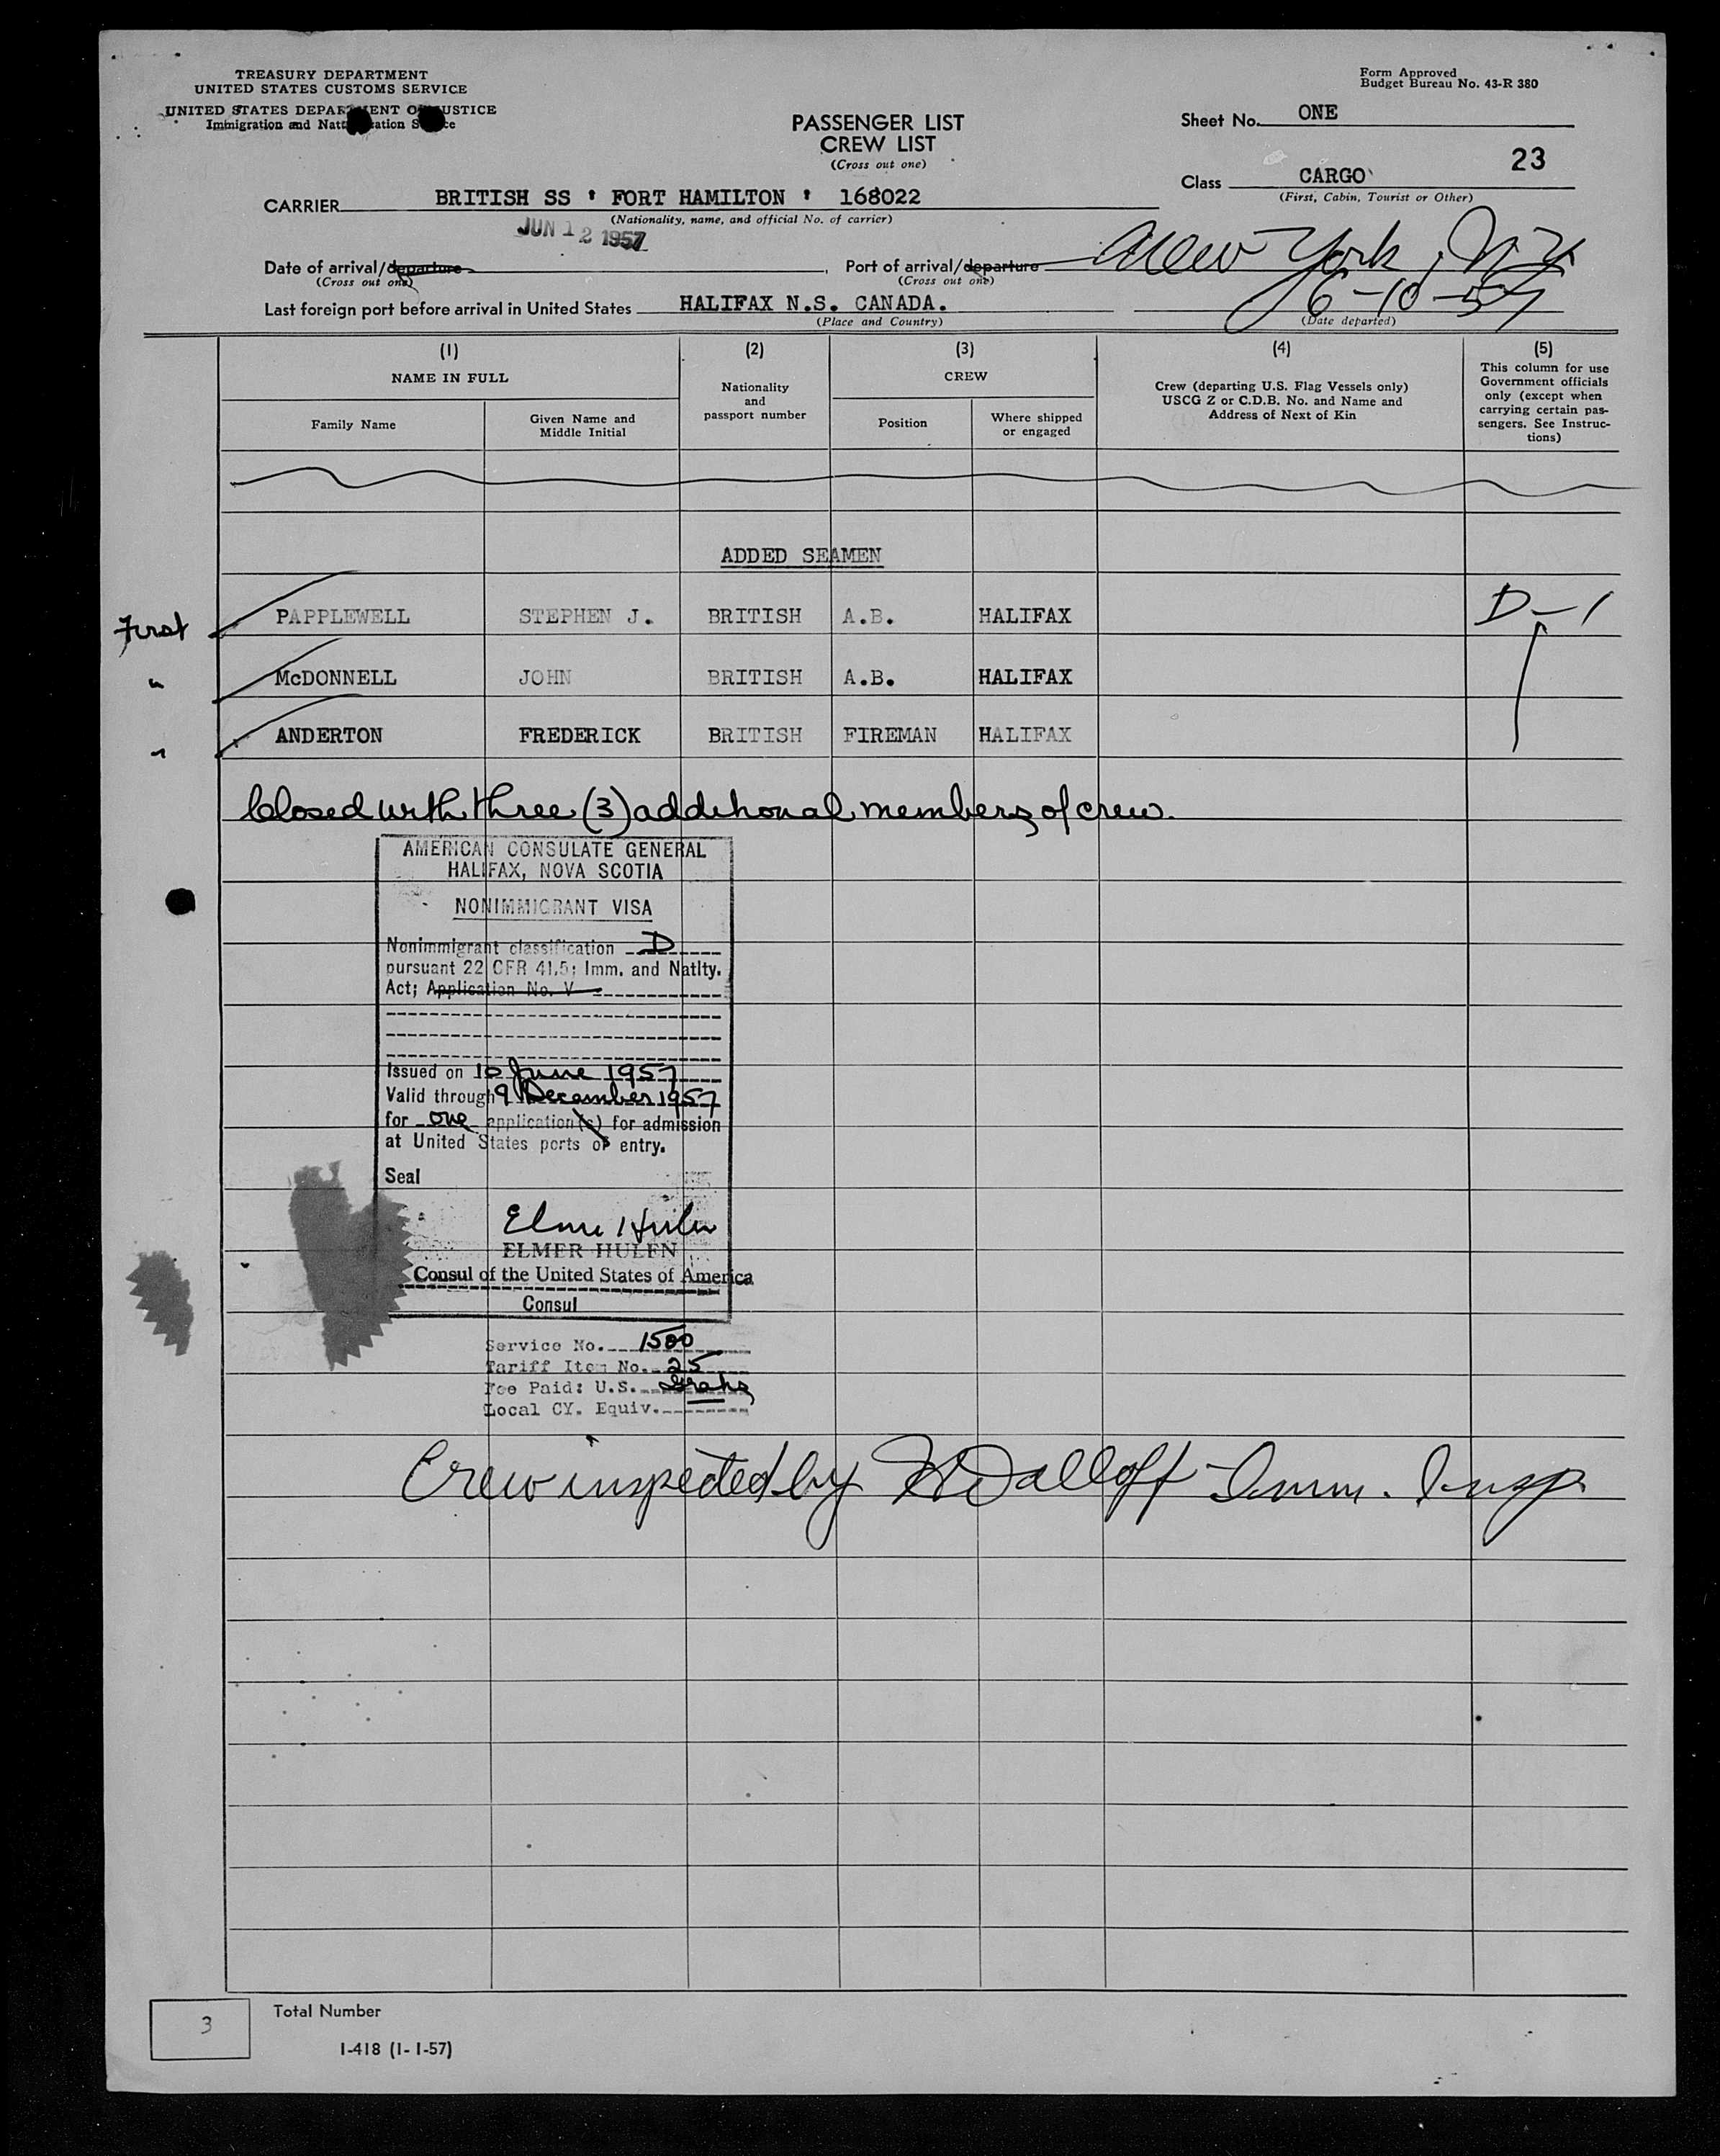 TREASURY DEPARTMENT
UNITED STATES CUSTOMS SERVICE
UNITED STATES DEPARTMENT OF JUSTICE
Immigration and Naturalization Service
Form Approved
Budget Bureau No. 43-R 380
PASSENGER LIST
CREW LIST
(Cross out one)
Sheet No. ONE
23
Class CARGO
(First, Cabin, Tourist or Other)
CARRIER BRITISH SS ' FORT HAMILTON ' 168022
(Nationality, name, and official No. of carrier)
JUN 12 1957
Date of arrival/departure , Port of arrival/departure New York, N.Y.
(Cross out one) (Cross out one)
Last foreign port before arrival in United States HALIFAX N.S. CANADA. 6-10-57
(Place and Country) (Date departed)
(1) (2) (3) (4) (5)
NAME IN FULL
Family Name
Given Name and
Middle Initial
Nationality
and
passport number
CREW
Position
Where shipped
or engaged
Crew (departing U.S. Flag Vessels only)
USCG Z or C.D.B. No. and Name and
Address of Next of Kin
This column for use
Government officials
only (except when
carrying certain pas-
sengers. See Instruc-
tions)
ADDED SEAMEN
First PAPPLEWELL STEPHEN J. BRITISH A.B. HALIFAX D-1
" McDONNELL JOHN BRITISH A.B. HALIFAX
" ANDERTON FREDERICK BRITISH FIREMAN HALIFAX
Closed with three (3) additional members of crew.
AMERICAN CONSULATE GENERAL
HALIFAX, NOVA SCOTIA
NONIMMIGRANT VISA
Nonimmigrant classification D
pursuant 22 CFR 41.5; Imm. and Natlty.
Act; Application No. V
Issued on 10 June 1957
Valid through 9 December 1957
for one application(s) for admission
at United States ports of entry.
Seal
Elmer Hulen
ELMER HULEN
Consul of the United States of America
Consul
Service No. 1500
Tariff Item No. 25
Fee Paid: U.S. Gratis
Local CY. Equiv.
Crew inspected by Imm. Insp.
3 Total Number
I-418 (1-1-57)